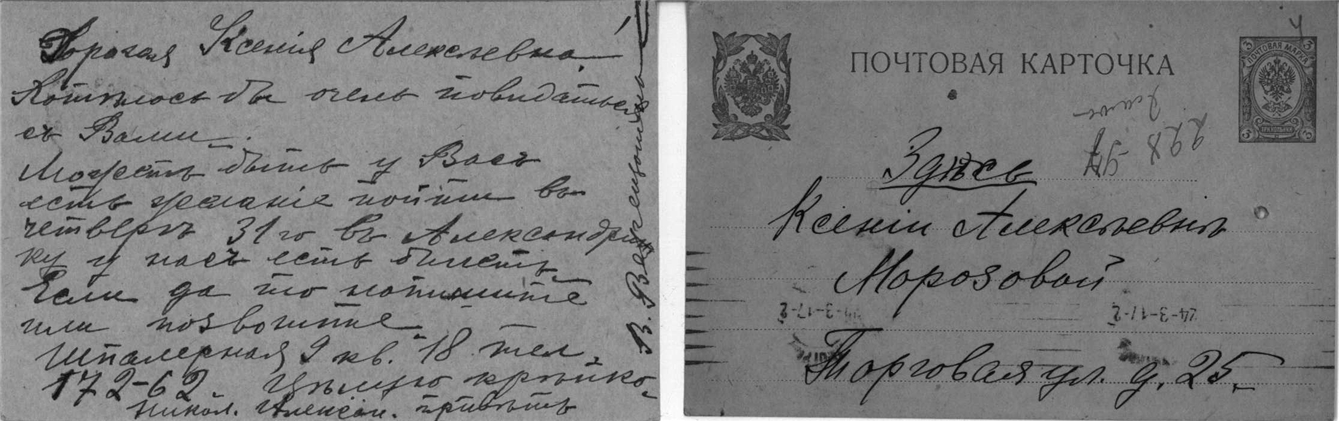 Дорогая Ксенія Алексѣевна!
Хотѣлось бы очень повидаться
съ Вами.
Можетъ быть у Васъ
есть желаніе пойти въ
четвергъ 31го въ Александрин
ку у насъ есть билетъ.
Если да то напишите
или позвоните
Шпалерная 9 кв. 18 тел.
172-62. Цѣлую крѣпко.
Никол. Алексан. привѣтъ
ПОЧТОВАЯ КАРТОЧКА
ПОЧТОВАЯ МАРКА
3 3
Здѣсь
Ксеніи Алексѣевнѣ
Морозовой
24-3-17-2
Торговая ул. д. 25.